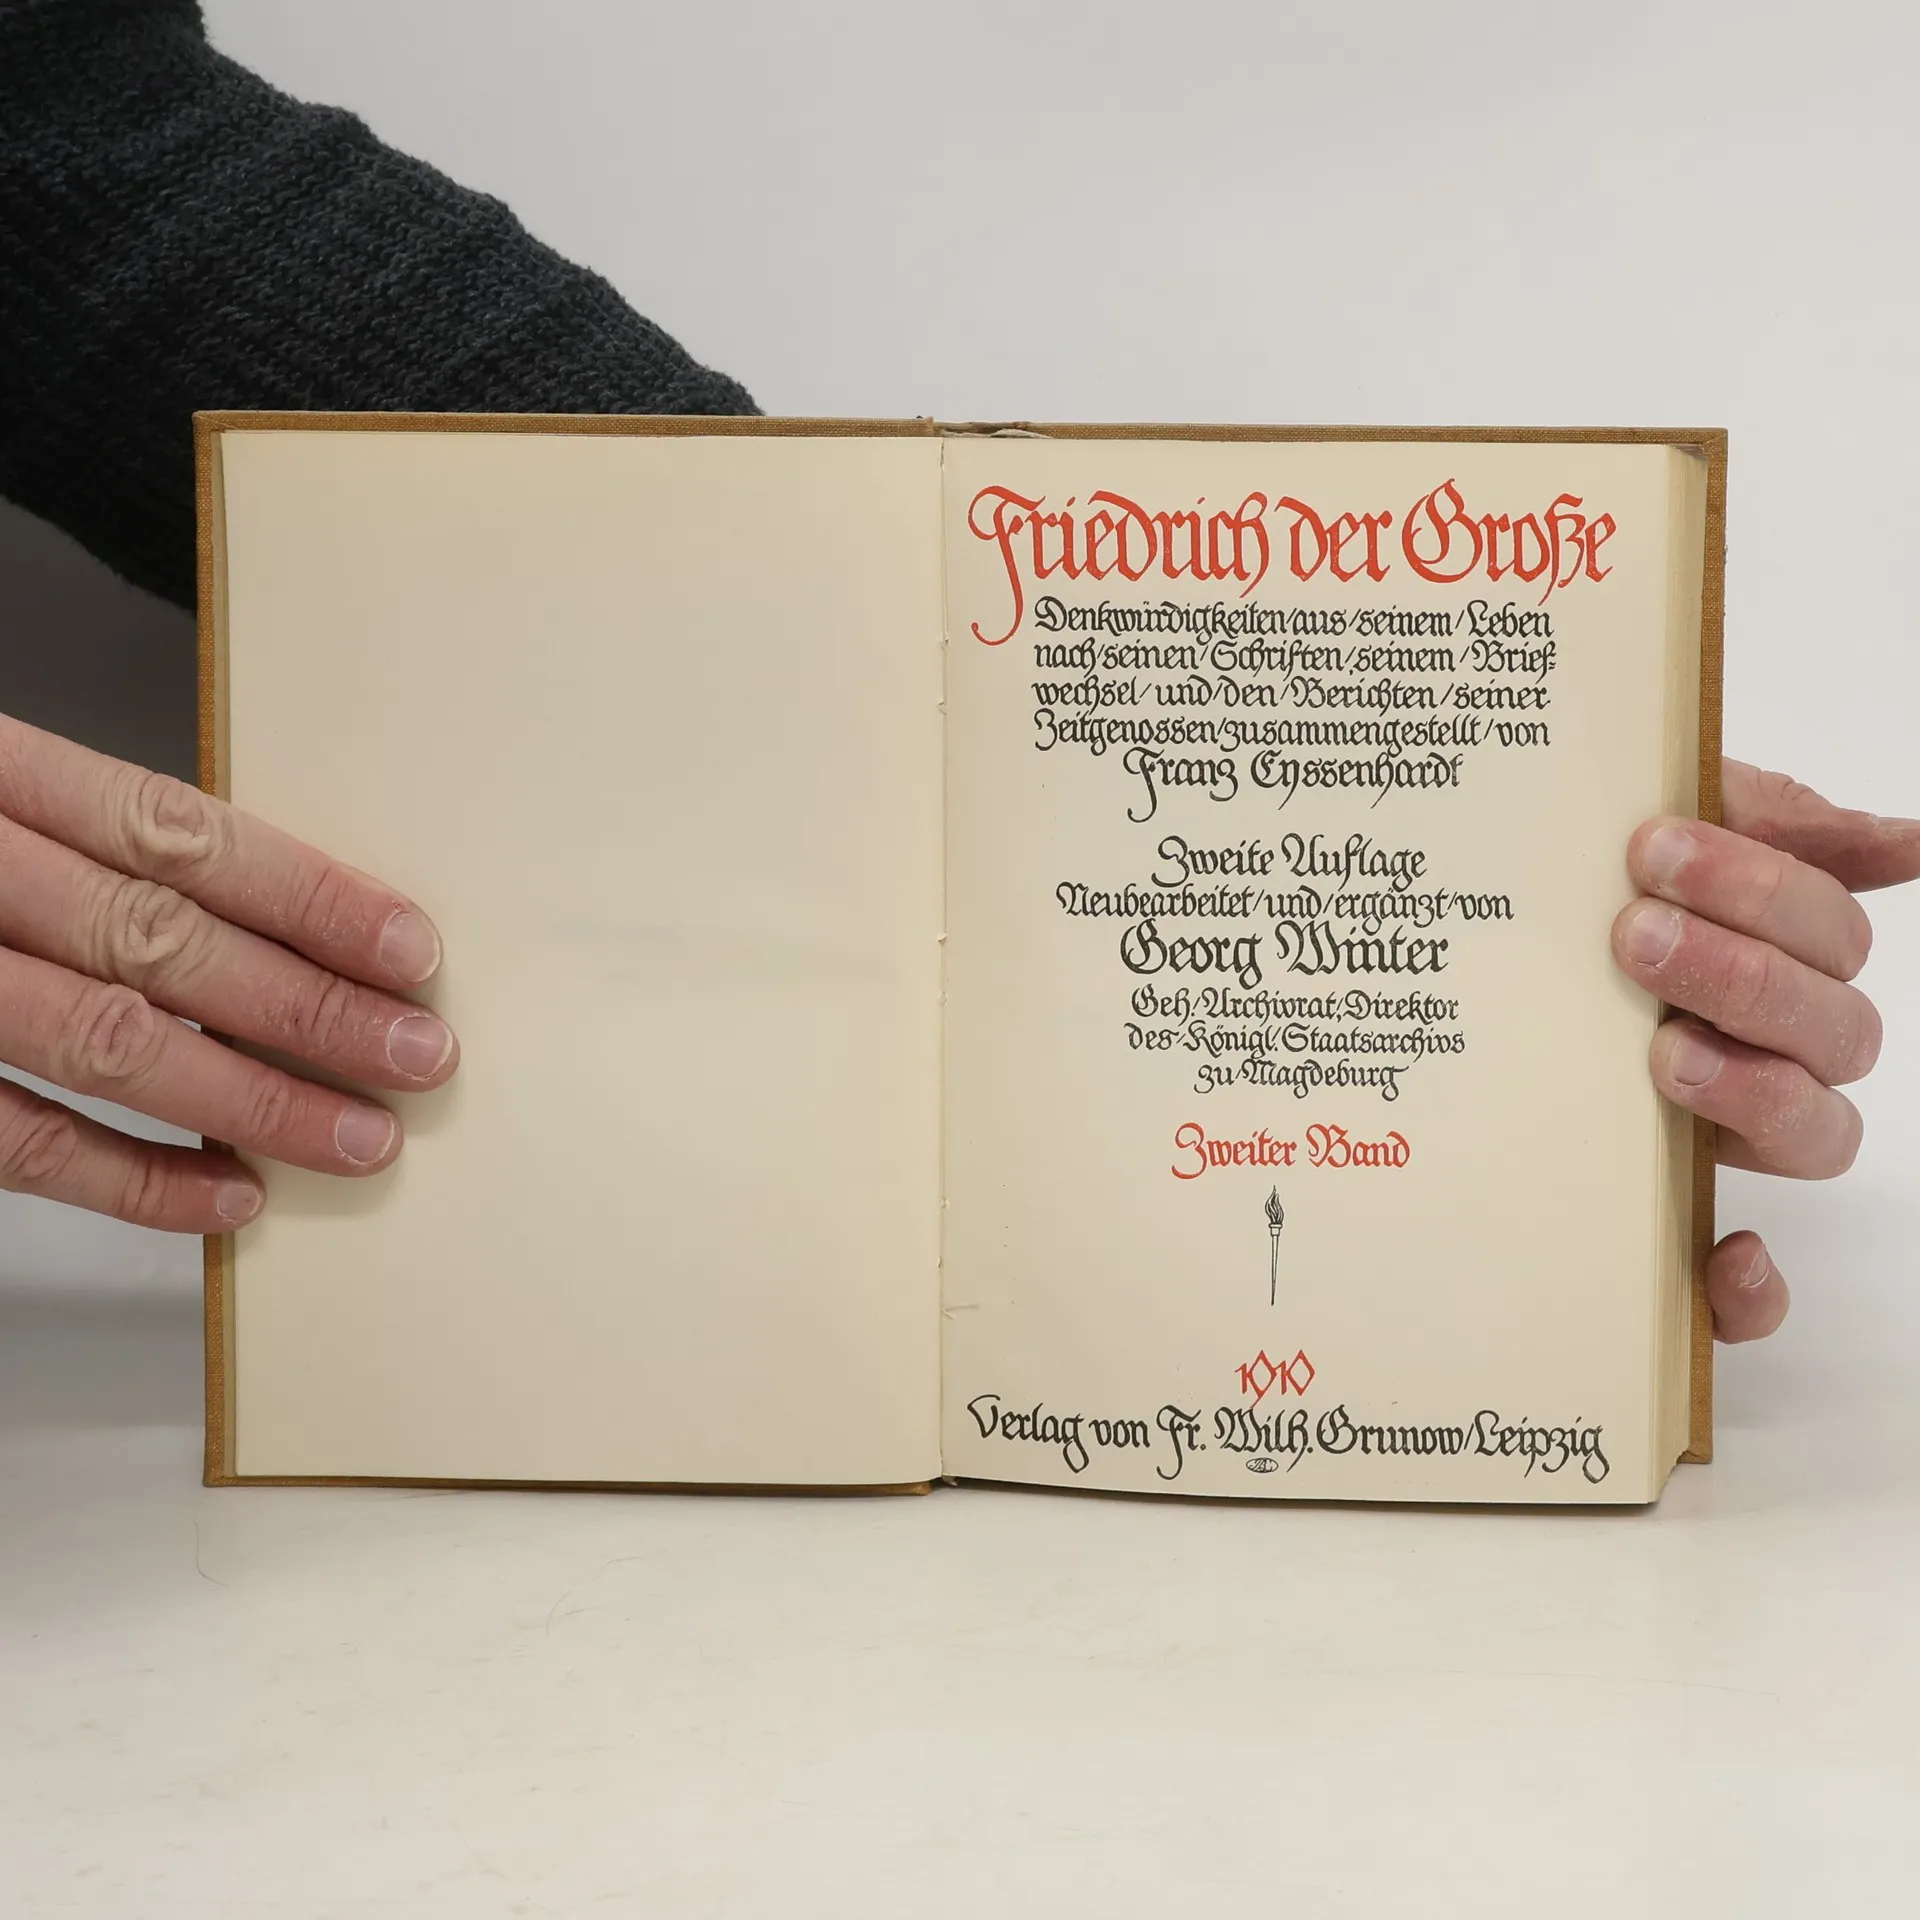 Friedrich der Große
Denkwürdigkeiten/aus/seinem/Leben
nach/seinen/Schriften/seinem/Brief-
wechsel/und/den/Berichten/seiner
Zeitgenossen/zusammengestellt/von
Franz Eyssenhardt
Zweite Auflage
Neubearbeitet/und/ergänzt/von
Georg Winter
Geh. Archivrat, Direktor
des Königl. Staatsarchivs
zu Magdeburg
Zweiter Band
1910
Verlag von Fr. Wilh. Grunow/Leipzig